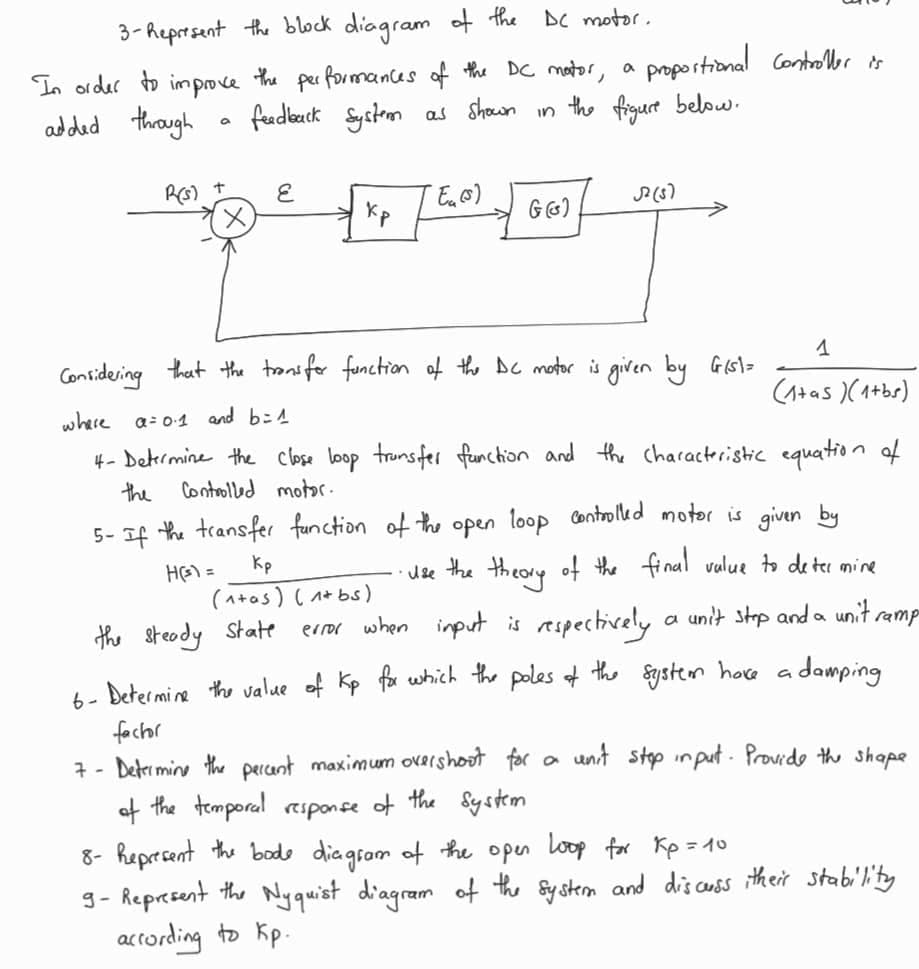 3- Represent the block diagram of the DC motor.
In order to improve the performances of the DC motor, a proportional controller is
added through a feedback system as shown in the figure below.
R(s) + ε Kp Ea(s) G(s) Ω(s)
-
Considering that the transfer function of the DC motor is given by G(s)= 1 / (1+as)(1+bs)
where a=0.1 and b=1
4- Determine the close loop transfer function and the characteristic equation of
the controlled motor.
5- If the transfer function of the open loop controlled motor is given by
H(s) = Kp / (1+as)(1+bs) . use the theory of the final value to determine
the steady state error when input is respectively a unit step and a unit ramp
6- Determine the value of Kp for which the poles of the system have a damping
factor
7- Determine the percent maximum overshoot for a unit step input. Provide the shape
of the temporal response of the system
8- Represent the bode diagram of the open loop for Kp = 10
9- Represent the Nyquist diagram of the system and discuss their stability
according to Kp.